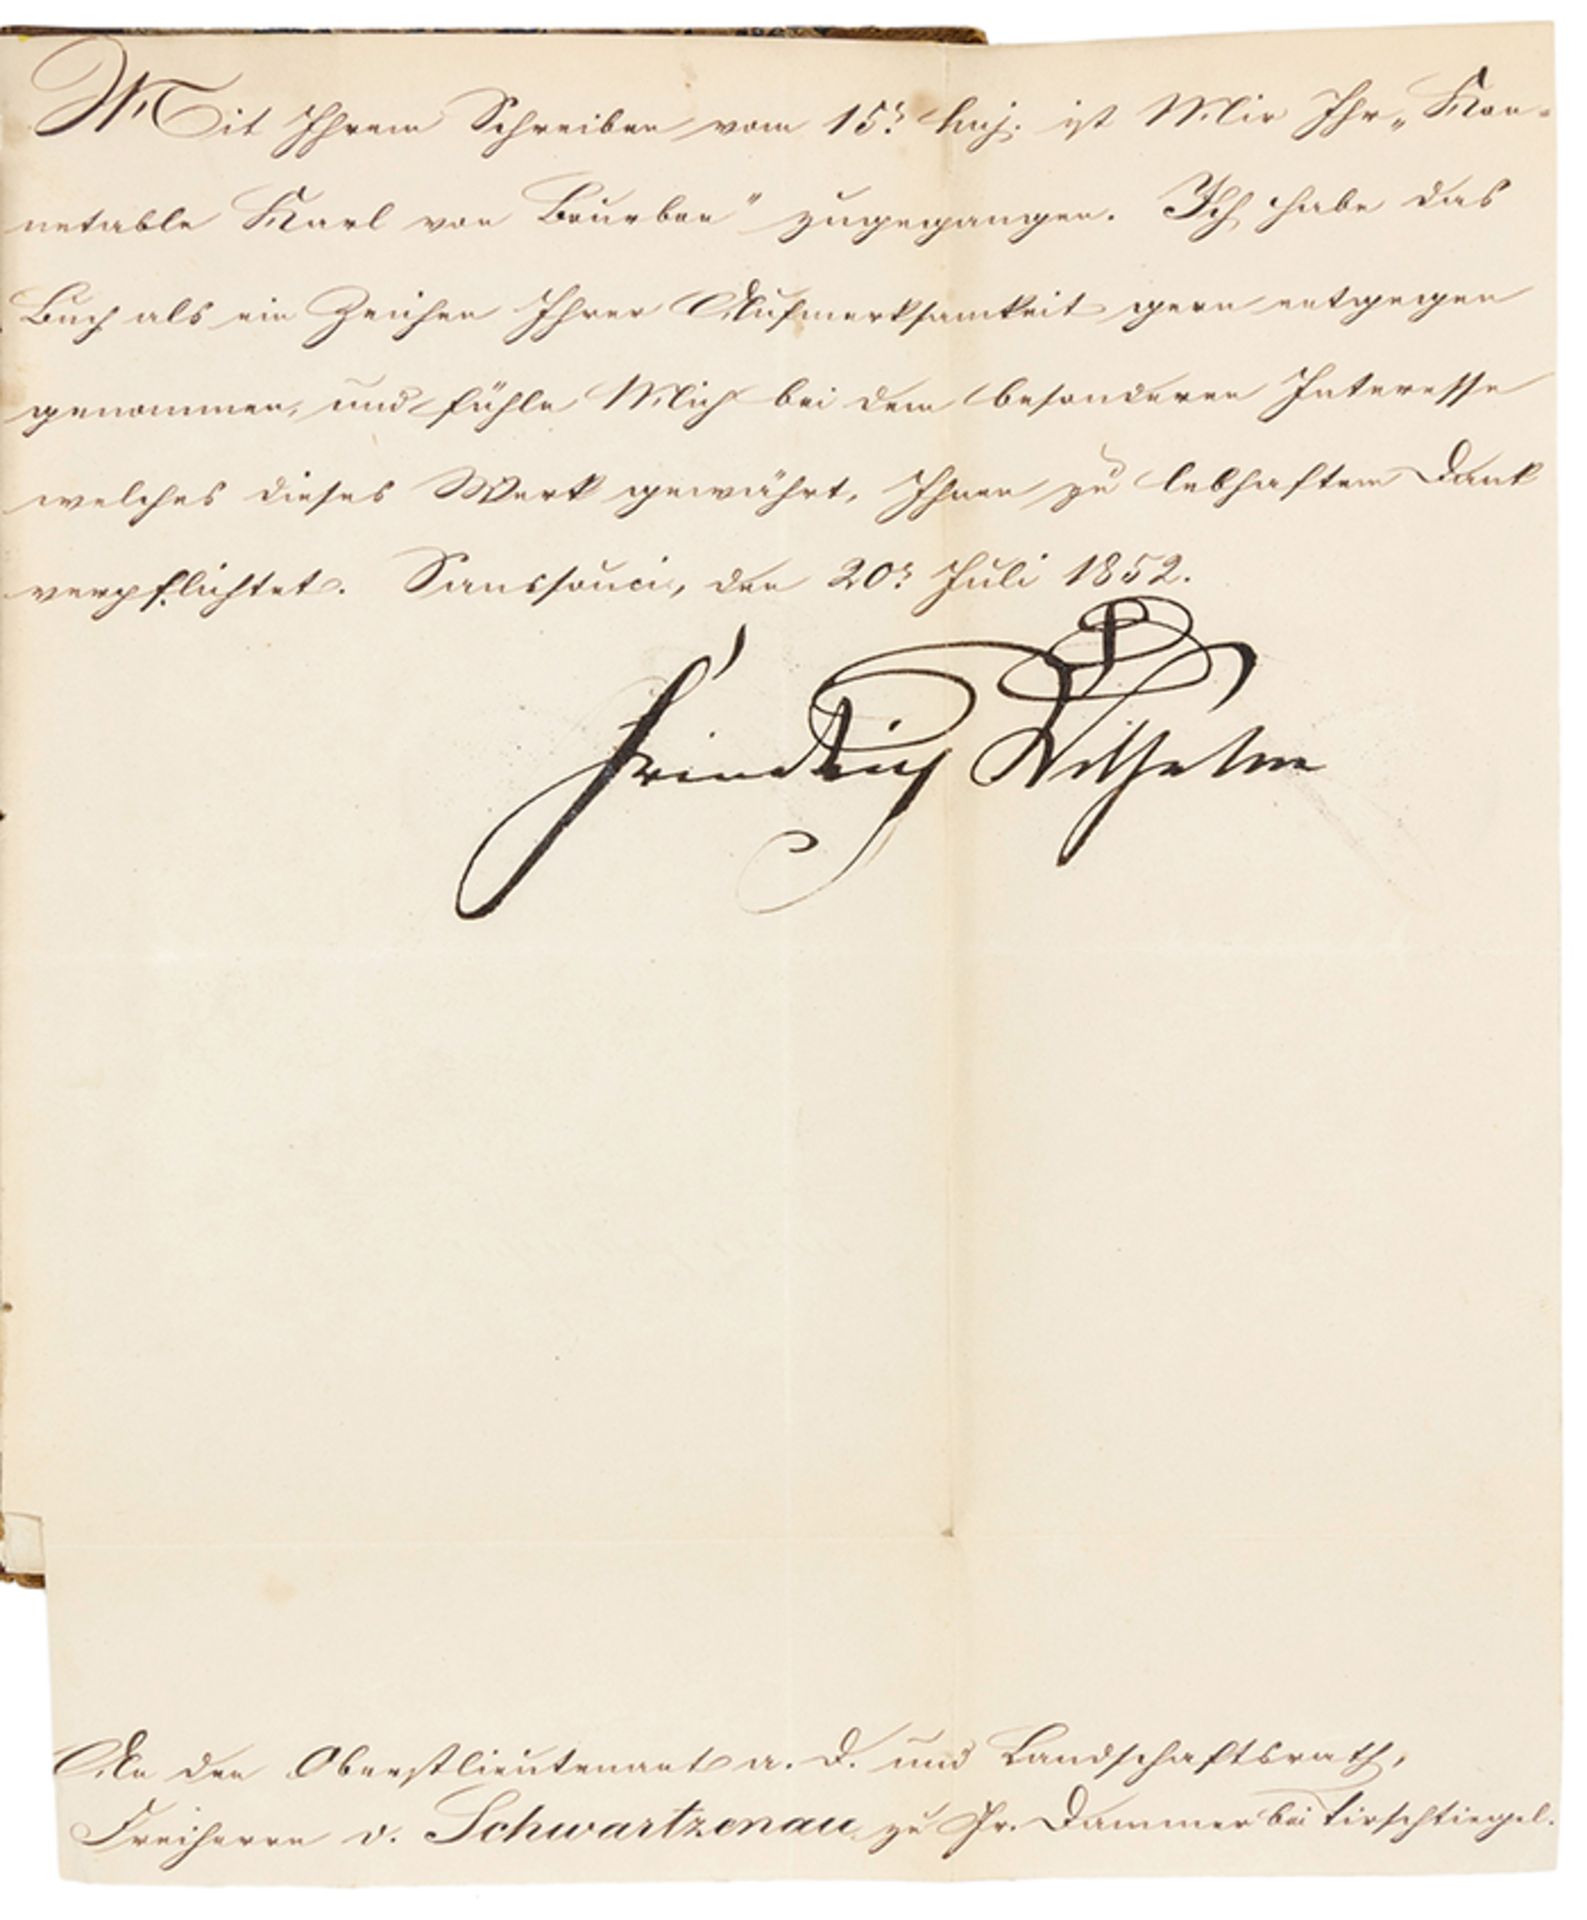 Mit Ihrem Schreiben vom 15ᵗ huj. ist Mir Ihr „Kon-
netable Karl von Bourbon" zugegangen. Ich habe das
Buch als ein Zeichen Ihrer Aufmerksamkeit gern entgegen
genommen, und fühle Mich bei dem besonderen Interesse
welches dieses Werk gewährt, Ihnen zu lebhaftem Dank
verpflichtet. Sanssouci, den 20ᵗ Juli 1852.
Friedrich Wilhelm
An den Oberstlieutenant a. D. und Landschaftsrath,
Freiherrn v. Schwartzenau zu Pr. Dammer bei Tirschtiegel.